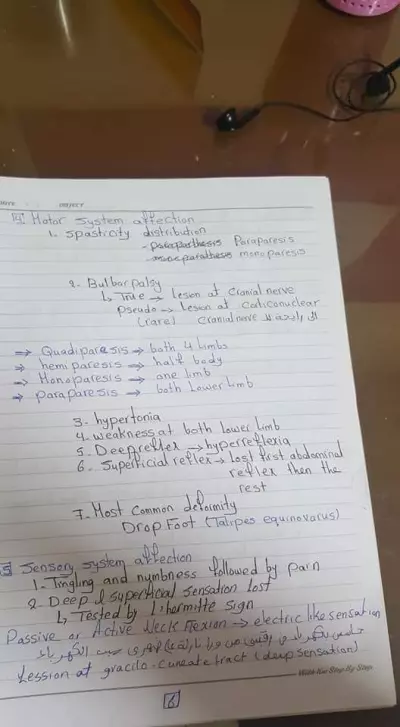 SUBJECT
4. Motor system affection
1. spasticity distribution
- Paraparesis
- monoparesis
2. Bulbar palsy
↳ True → lesion at Cranial nerve
pseudo → Lesion at Corticonuclear
(rare) Cranial nerve
⇒ Quadiparesis → both 4 limbs
⇒ hemiparesis → half body
⇒ Monoparesis → one limb
⇒ paraparesis → both Lower limb
3. hypertonia
4. weakness at both lower limb
5. Deep reflex → hyperreflexia
6. Superficial reflex → Lost first abdominal
reflex then the
rest
7. Most Common deformity
Drop Foot (Talipes equinovarus)
5 Sensory system affection
1. Tingling and numbness followed by pain
2. Deep & superficial sensation lost
↳ Tested by Lihermitte sign
Passive or Active Neck flexion → electric like sensation
Lession at gracile-cuneate tract (deep sensation)
Make You Step By Step
6